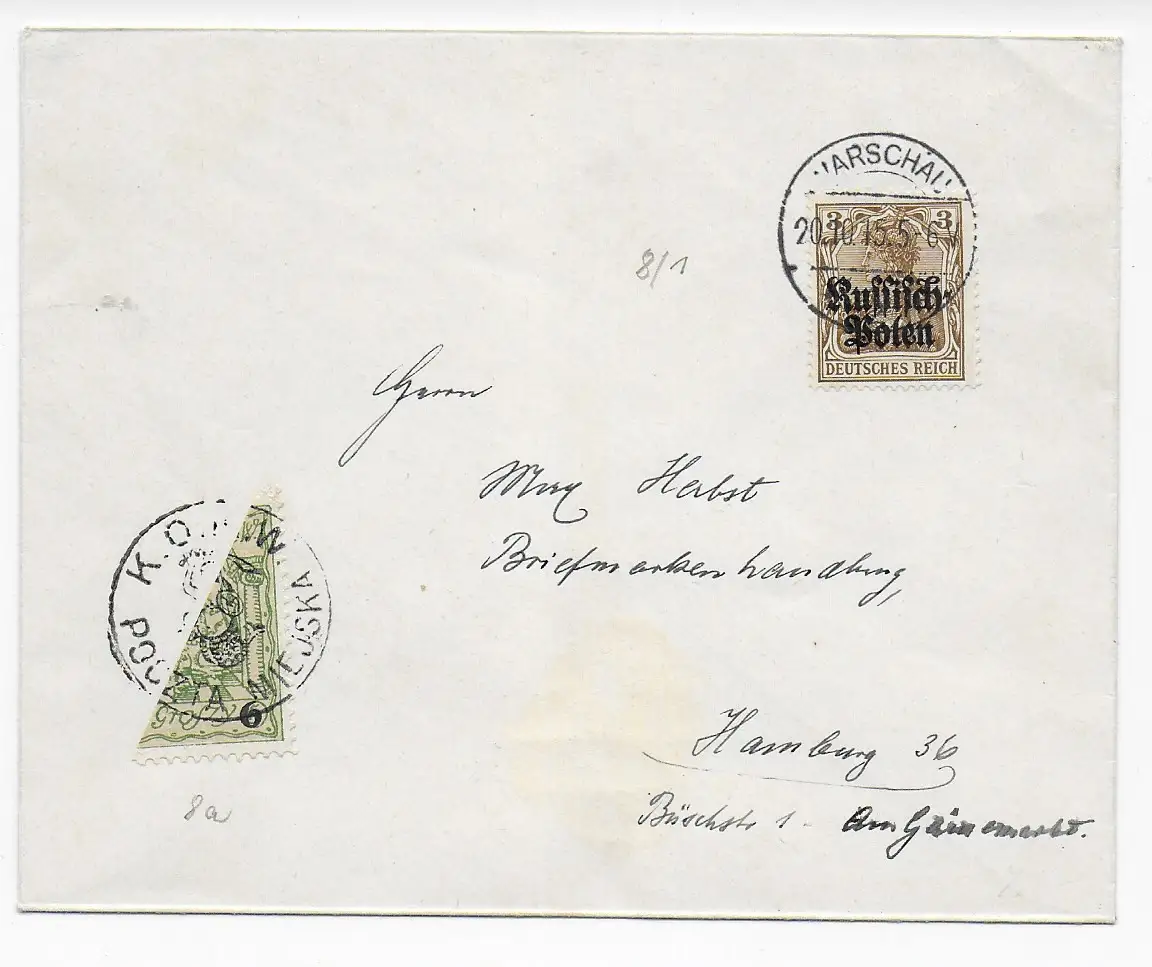 WARSCHAU
20.10.15.5-6 V
3 3
Russisch-
Polen
DEUTSCHES REICH
8/1
Herrn
Max Herbst
Briefmarkenhandlung,
Hamburg 36
Büschstr 1 - Am Gänsemarkt.
K.O.M.W.
POCZTA MIEJSKA
groszy
6
8a